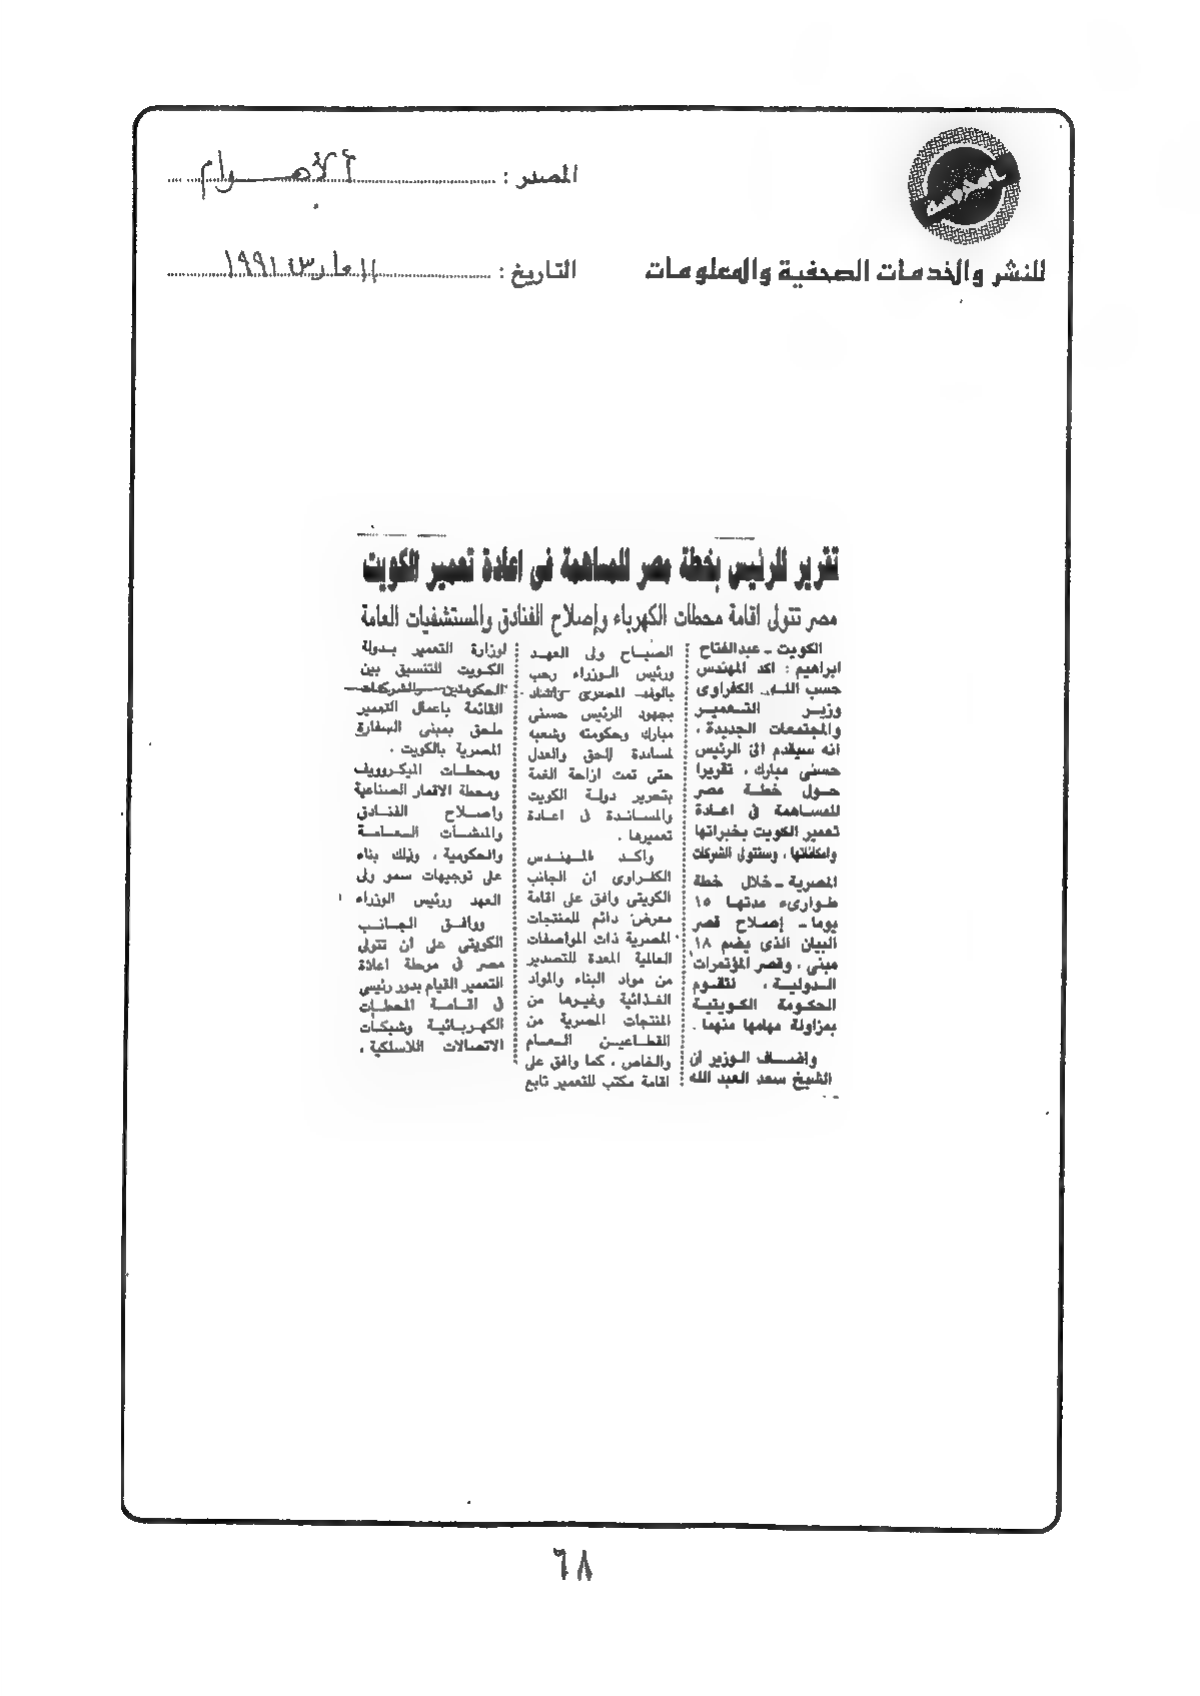 المصدر : الأهرام
للنشر والخدمات الصحفية والمعلومات
التاريخ : ١١ مارس ١٩٩١
تقرير للرئيس بخطة مصر للمساهمة فى اعادة تعمير الكويت
مصر تتولى اقامة محطات الكهرباء وإصلاح الفنادق والمستشفيات العامة
الكويت ـ عبدالفتاح
ابراهيم : اكد المهندس
حسب الله الكفراوى
وزير التعمير
والمجتمعات الجديدة ،
انه سيقدم الى الرئيس
حسنى مبارك ، تقريرا
حول خطة مصر
للمساهمة فى اعادة
تعمير الكويت بخبراتها
وامكاناتها ، وستتولى الشركات
المصرية ـ خلال خطة
طوارىء مدتها ١٥
يوما ـ إصلاح قصر
البيان الذى يضم ١٨
مبنى ، وقصر المؤتمرات
الدولية ، لتقوم
الحكومة الكويتية
بمزاولة مهامها منهما .
واضاف الوزير ان
الشيخ سعد العبد الله
الصباح ولى العهد
ورئيس الوزراء رحب
بالوفد المصرى واشاد
بجهود الرئيس حسنى
مبارك وحكومته وشعبه
لمساندة الحق والعدل
حتى تمت ازاحة الغمة
بتحرير دولة الكويت
والمساندة فى اعادة
تعميرها .
واكد المهندس
الكفراوى ان الجانب
الكويتى وافق على اقامة
معرض دائم للمنتجات
المصرية ذات المواصفات
العالمية المعدة للتصدير
من مواد البناء والمواد
الغذائية وغيرها من
المنتجات المصرية من
القطاعين العام
والخاص ، كما وافق على
اقامة مكتب للتعمير تابع
لوزارة التعمير بدولة
الكويت للتنسيق بين
الحكومتين والشركات
القائمة باعمال التعمير
ملحق بمبنى السفارة
المصرية بالكويت .
ومحطات الميكروويف
ومحطة الاقمار الصناعية
واصلاح الفنادق
والمنشآت العامة
والحكومية ، وذلك بناء
على توجيهات سمو ولى
العهد ورئيس الوزراء
ووافق الجانب
الكويتى على ان تتولى
مصر فى مرحلة اعادة
التعمير القيام بدور رئيسى
فى اقامة المحطات
الكهربائية وشبكات
الاتصالات اللاسلكية ،
٦٨